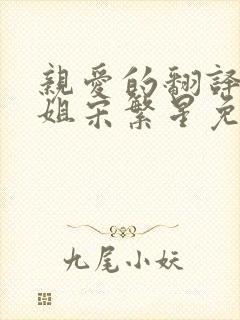 親愛的翻譯
姐宋繁星免
九尾小妖